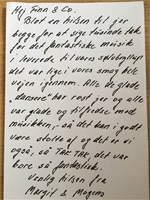 Hej Finn & Co.
Blot en hilsen til jer
begge for at sige tusinde tak
for det fantastiske musik
I leverede til vores sølvbryllup
det var lige i vores smag hele
vejen igennem. Alle de glade
"dansere" har rost jer og alle
var glade og tilfredse med
musikken, så det kan I godt
være stolte og det er vi
også, så TAK TAK, det var
bare så fantastisk.
Venlig hilsen fra
Margit & Mogens